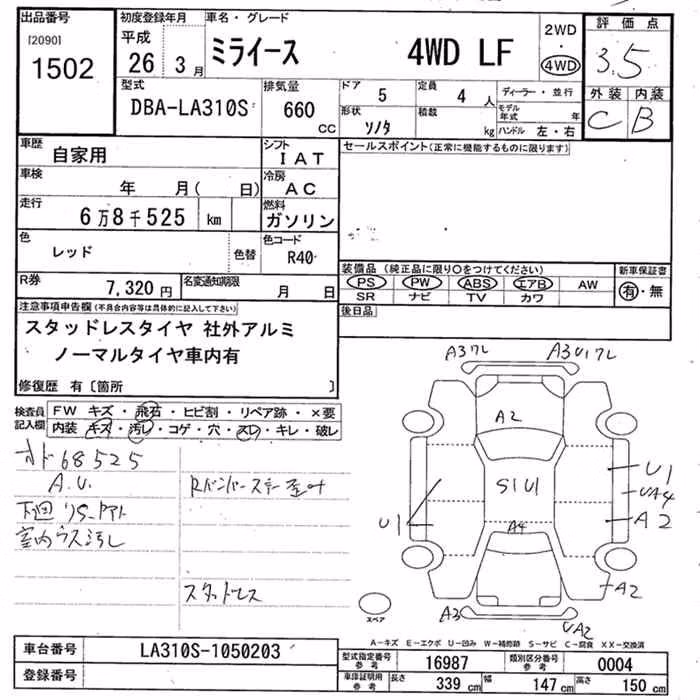 出品番号
[2090]
1502
初度登録年月
平成
26 3 月
車名・グレード
ミライース 4WD LF
2WD
・
4WD
評価点
3.5
外装 内装
C B
型式
DBA-LA310S
排気量
660 CC
ドア
5
定員
4 人
ディーラー・並行
モデル年式 年
形状
ソノタ
積載
kg
ハンドル 左・右
車歴
自家用
シフト
IAT
車検
年 月( 日)
冷房
AC
走行
6万8千525 km
燃料
ガソリン
色
レッド
色替
色コード
R40
R券
7,320 円
名変通知期限
月 日
セールスポイント(正常に機能するものに限ります)
装備品(純正品に限り○をつけてください)
PS PW ABS エアB AW
SR ナビ TV カワ
新車保証書
有・無
後日品
注意事項申告欄(不具合内容等は具体的に記入して下さい)
スタッドレスタイヤ 社外アルミ
ノーマルタイヤ車内有
修復歴 有〔箇所 〕
検査員記入欄
FW キズ・飛石・ヒビ割・リペア跡・×要
内装 キズ・汚レ・コゲ・穴・スレ・キレ・破レ
68525
A.U.
下廻
室内ウス汚し
スタットレス
A3
A3 U1
A2
S1 U1
U1
A4
U1
UA4
A2
A2
A3
UA2
スペア
A－キズ E－エクボ U－凹み W－補修跡 S－サビ C－腐食 XX－交換済
車台番号
LA310S-1050203
登録番号
型式指定番号 参考
16987
類別区分番号 参考
0004
車庫証明用 参考
長さ 339 cm 幅 147 cm 高さ 150 cm